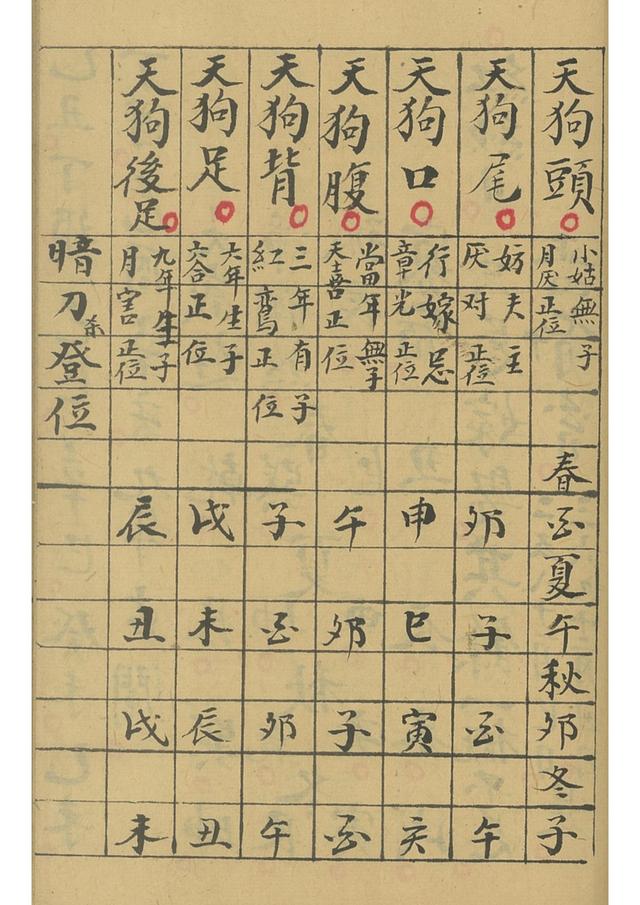 天狗頭
小姑無子
月厌正位
春
酉
夏
午
秋
卯
冬
子
天狗尾
妨夫主
厌对正位
卯
子
酉
午
天狗口
行嫁忌
章光正位
申
巳
寅
亥
天狗腹
當年無子
天喜正位
午
卯
子
酉
天狗背
三年有子
紅鸾正位
子
酉
卯
午
天狗足
六年生子
六合正位
戌
未
辰
丑
天狗後足
九年生子
月害正位
辰
丑
戌
未
暗刀杀登位